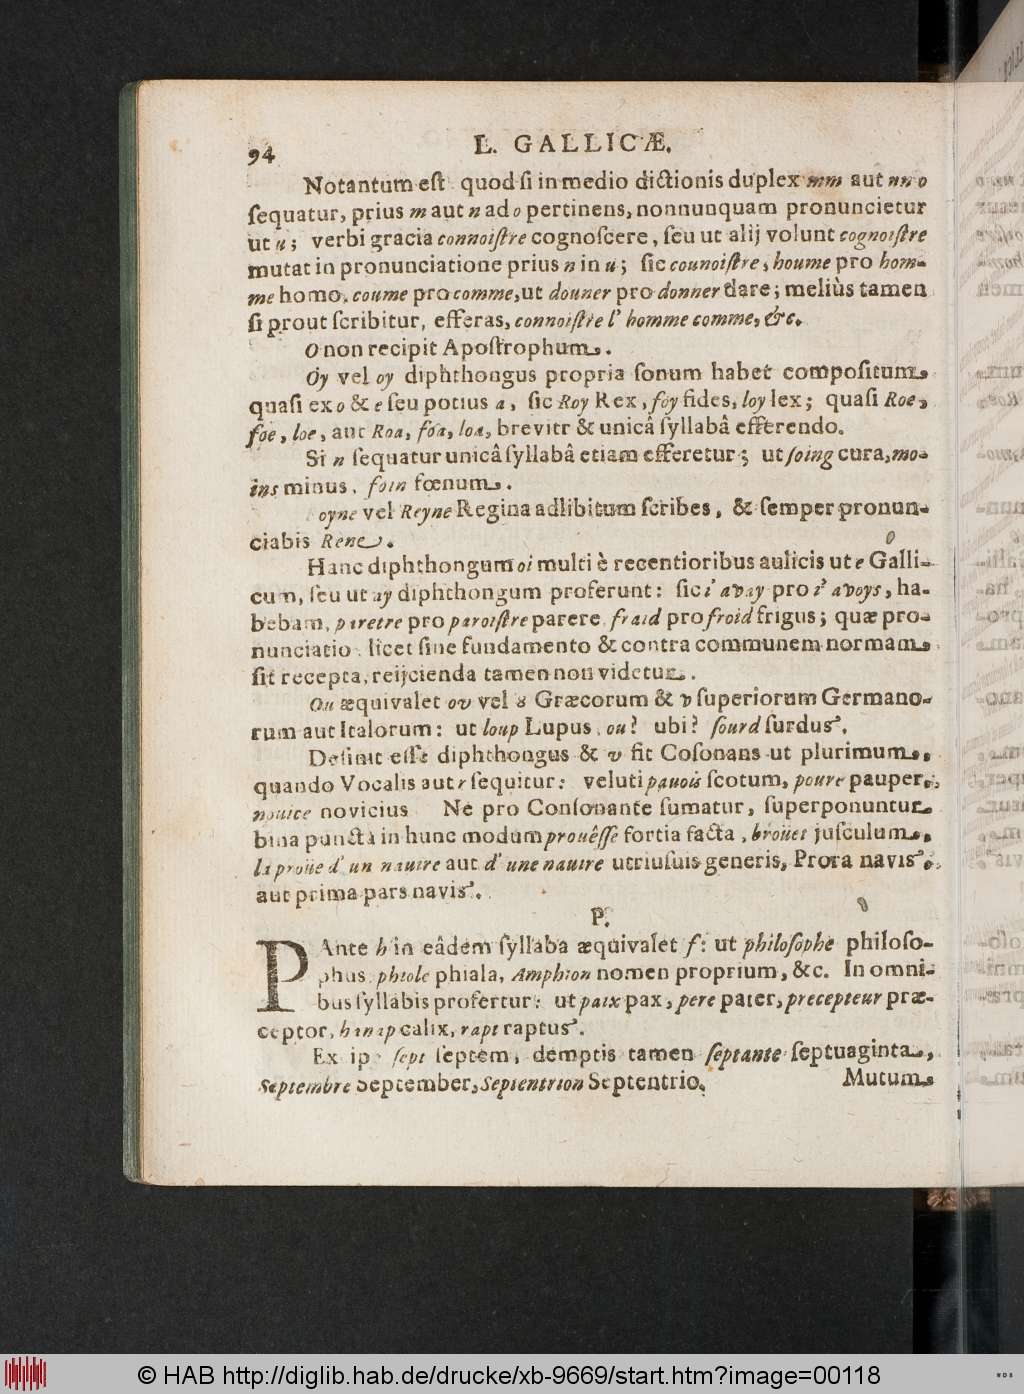 94 L. GALLICÆ.
Notantum est quod si in medio dictionis duplex mm aut nn o
sequatur, prius m aut n ad o pertinens, nonnunquam pronuncietur
ut u; verbi gracia connoistre cognoscere, seu ut alij volunt cognoistre
mutat in pronunciatione prius n in u; sic counoistre, houme pro hom-
me homo, coume pro comme, ut douner pro donner dare; meliùs tamen
si prout scribitur, efferas, connoistre l' homme comme, &c.
O non recipit Apostrophum.
Oy vel oy diphthongus propria sonum habet compositum,
quasi ex o & e seu potius a, sic Roy Rex, foy fides, loy lex; quasi Roe,
foe, loe, aut Roa, foa, loa, brevitr & unicâ syllabâ efferendo.
Si n sequatur unicâ syllabâ etiam efferetur; ut soing cura, mo-
ins minus, foin fœnum.
oyne vel Reyne Regina adlibitum scribes, & semper pronun-
ciabis Rene.
Hanc diphthongum oi multi è recentioribus aulicis ut e Galli-
cum, seu ut ay diphthongum proferunt: sic i' avay pro i' avoys, ha-
bebam, paretre pro paroistre parere, fraid pro froid frigus; quæ pro-
nunciatio licet sine fundamento & contra communem normam
sit recepta, reijcienda tamen non videtur.
Ou æquivalet ου vel ȣ Græcorum & v superiorum Germano-
rum aut Italorum: ut loup Lupus, ou? ubi? sourd surdus.
Desinit esse diphthongus & v fit Cosonans ut plurimum,
quando Vocalis aut r sequitur: veluti pauois scotum, poure pauper,
nouice novicius Ne pro Consonante sumatur, superponuntur
bina puncta in hunc modum prouêsse fortia facta, broüet jusculum,
la proüe d' un nauire aut d' une nauire utriusuis generis, Prora navis,
aut prima pars navis.
P.
PAnte h in eâdem syllaba æquivalet f: ut philosophe philoso-
phus, phiole phiala, Amphion nomen proprium, &c. In omni-
bus syllabis profertur: ut paix pax, pere pater, precepteur præ-
ceptor, hanap calix, rapt raptus.
Ex ip sept septem, demptis tamen septante septuaginta,
Septembre September, Septentrion Septentrio.
Mutum
© HAB http://diglib.hab.de/drucke/xb-9669/start.htm?image=00118